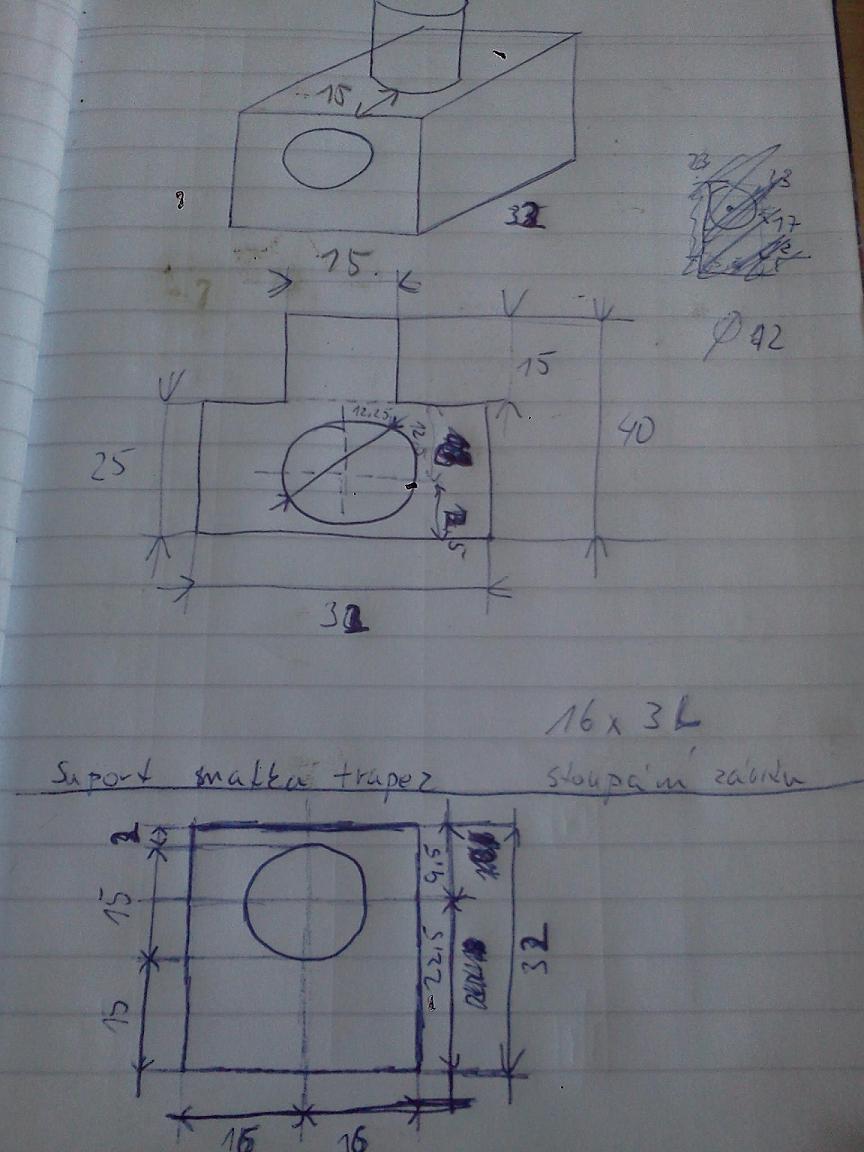 15
32
15
Ø 12
15
40
25
12,25
12,5
32
16 x 32
Suport matka trapez stoupání závitu
2
9,5
15
32
22,5
15
16 16